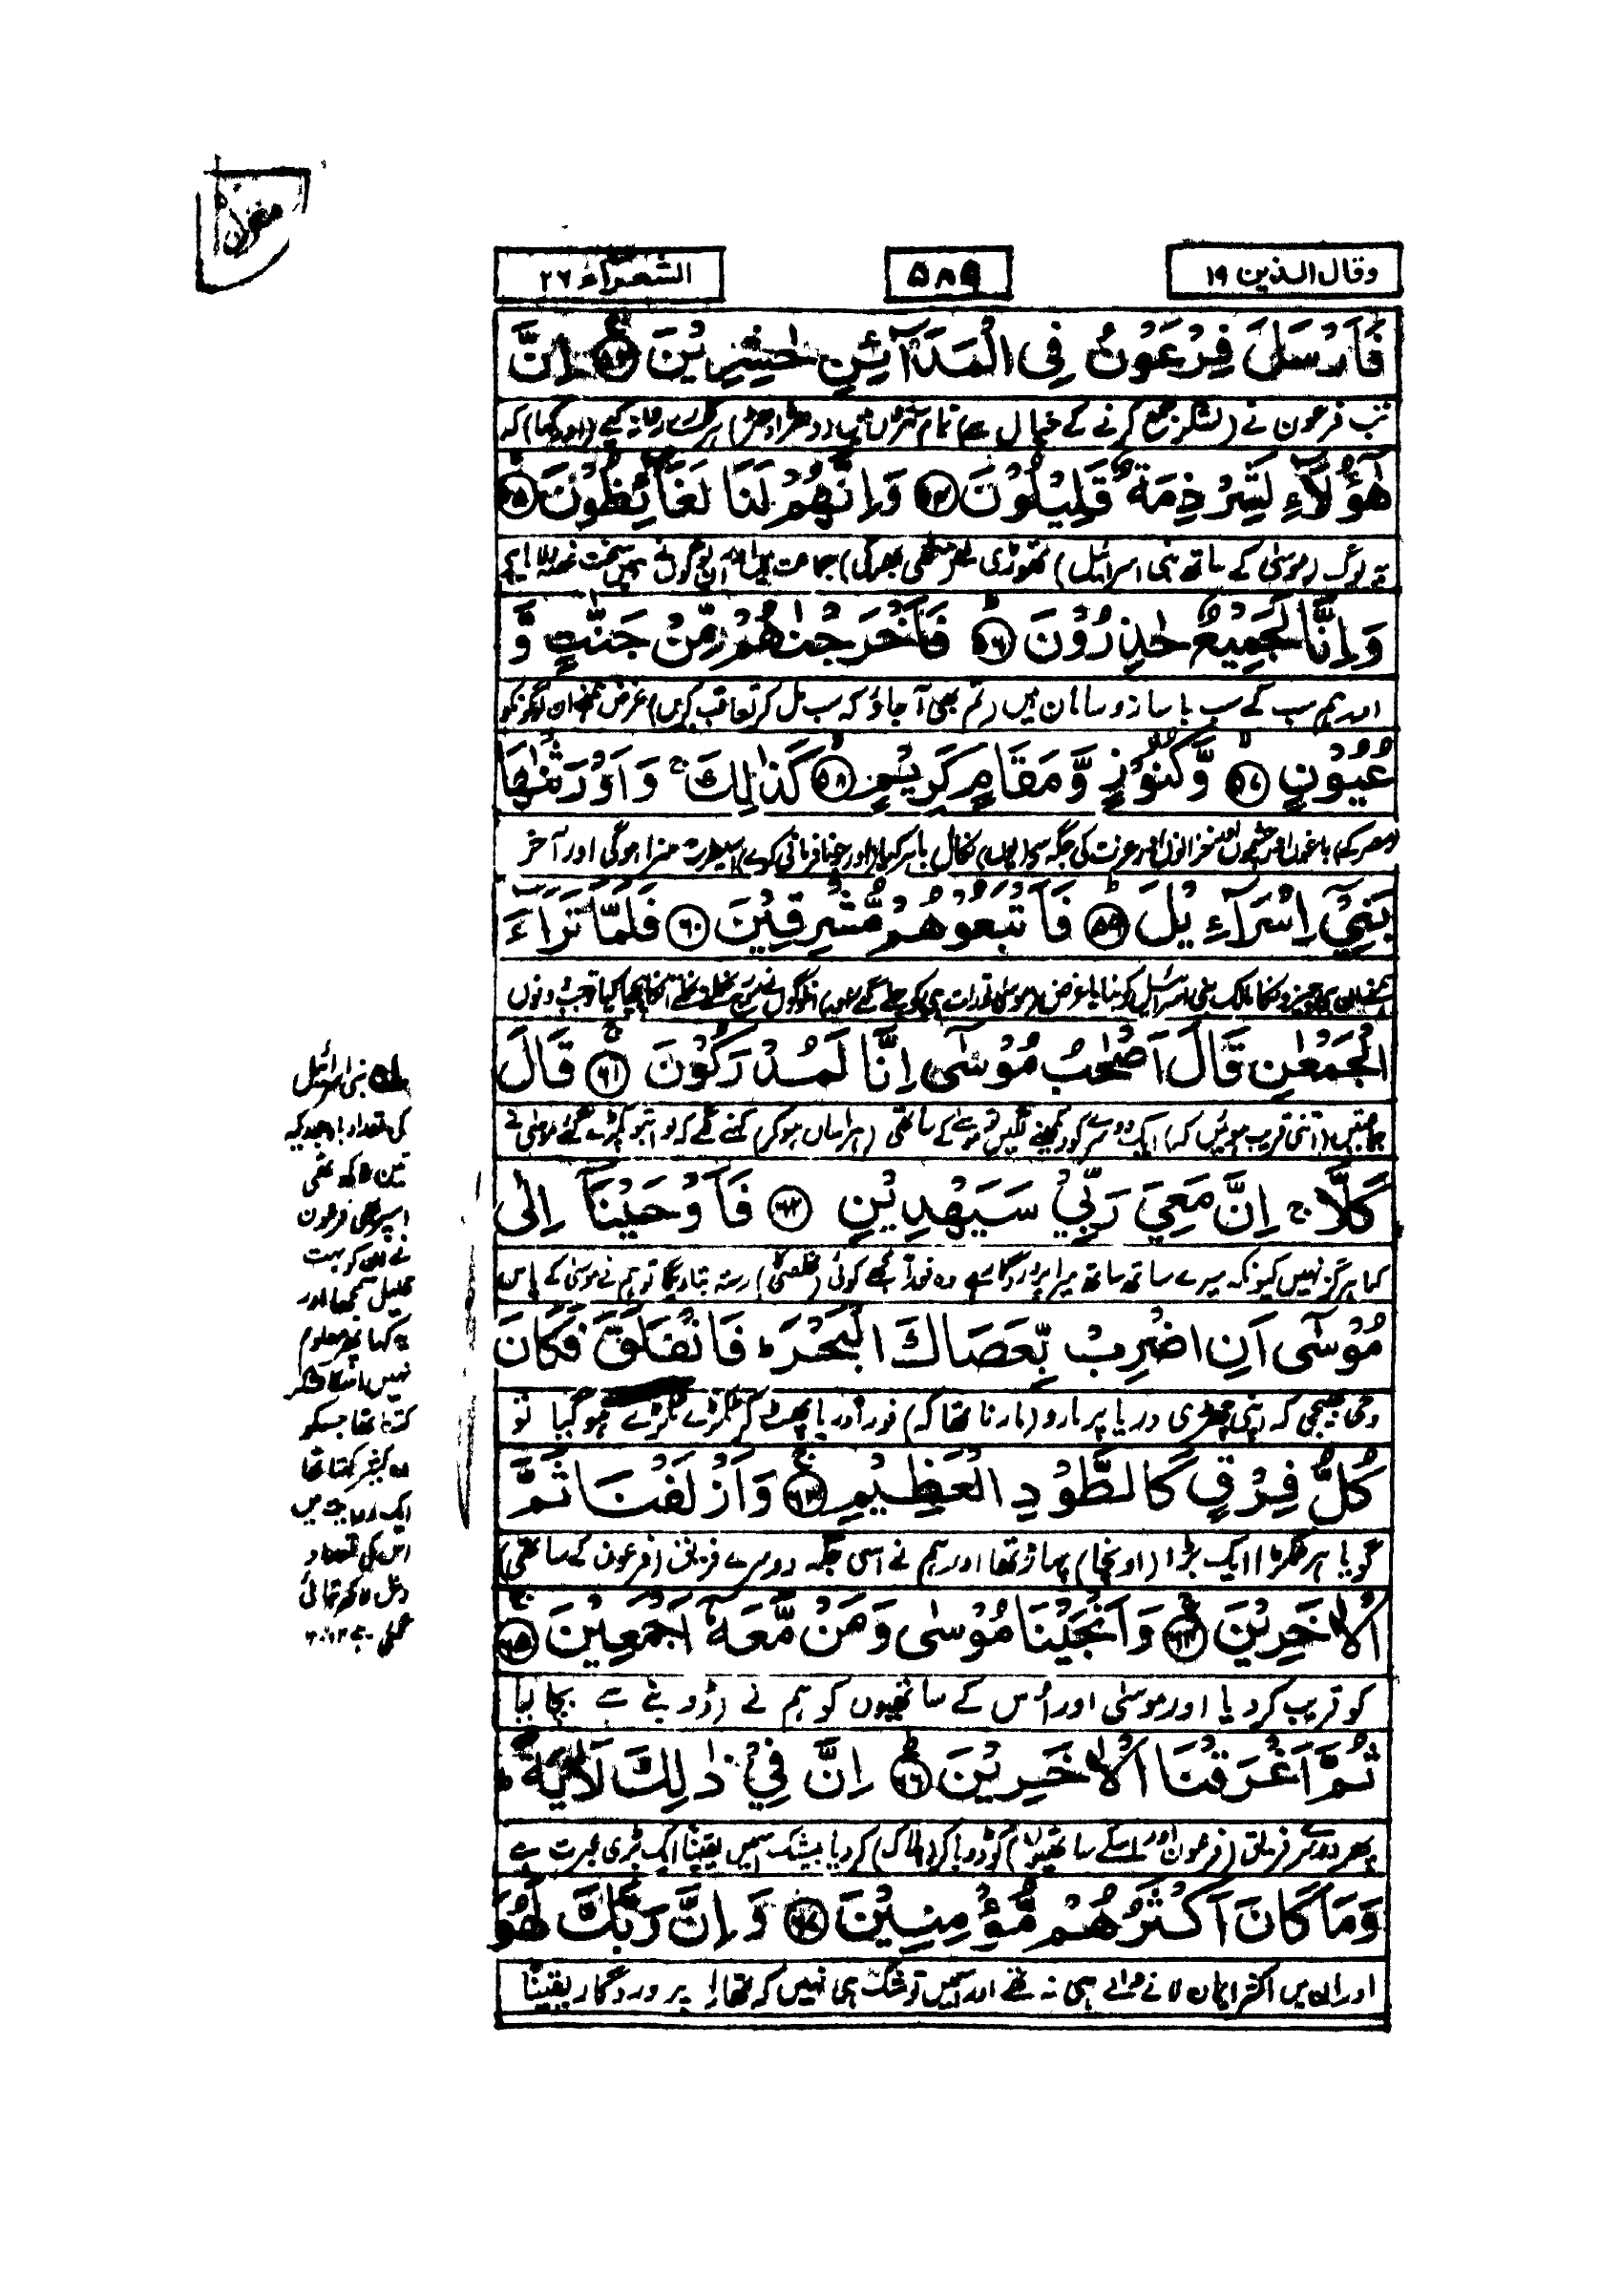 وقال الذین ۱۹
۵۸۹
الشعراء ۲۶
فَاَرْسَلَ فِرْعَوْنُ فِی الْمَدَآئِنِ حٰشِرِیْنَ ﴿۵۳﴾ اِنَّ
تب فرعون نے (لشکر جمع کرنے کے خیال سے) تمام شہروں میں (دھڑا دھڑ) ہرکارے روانہ کیے (اور کہا) کہ
هٰۤؤُلَآءِ لَشِرْذِمَةٌ قَلِیْلُوْنَ ﴿۵۴﴾ وَاِنَّهُمْ لَنَا لَغَآئِظُوْنَ ﴿۵۵﴾
یہ لوگ (موسیٰ کے ساتھ بنی اسرائیل) تھوڑی سی (مٹھی بھر کی) جماعت ہیں اور ان لوگوں نے ہمیں سخت غصہ دلایا ہے
وَاِنَّا لَجَمِیْعٌ حٰذِرُوْنَ ﴿۵۶﴾ فَاَخْرَجْنٰهُمْ مِّنْ جَنّٰتٍ وَّ
اور ہم سب کے سب با ساز و سامان ہیں (تم بھی آ جاؤ کہ سب مل کر تعاقب کریں) غرض ہم نے ان لوگوں کو
عُیُوْنٍ ﴿۵۷﴾ وَّكُنُوْزٍ وَّمَقَامٍ كَرِیْمٍ ﴿۵۸﴾ كَذٰلِكَ ؕ وَاَوْرَثْنٰهَا
(مصر کے) باغوں اور چشموں اور خزانوں اور عزت کی جگہ سے (یوں) نکال باہر کیا (اور جو نافرمانی کرے) اسی طرح سزا ہوگی اور آخر
بَنِیْۤ اِسْرَآءِیْلَ ﴿۵۹﴾ فَاَتْبَعُوْهُمْ مُّشْرِقِیْنَ ﴿۶۰﴾ فَلَمَّا تَرَآءَ
ہم نے ان چیزوں کا مالک بنی اسرائیل کو بنایا غرض (موسیٰ تو رات ہی کو چلے گئے اور) ان لوگوں نے سورج نکلتے نکلتے ان کا پیچھا کیا تو جب دونوں
الْجَمْعٰنِ قَالَ اَصْحٰبُ مُوْسٰۤی اِنَّا لَمُدْرَكُوْنَ ﴿۶۱﴾ قَالَ
جماعتیں (اتنی قریب ہوئیں کہ) ایک دوسرے کو دیکھنے لگیں تو موسیٰ کے ساتھی (ہراساں ہو کر) کہنے لگے کہ اب تو پکڑے گئے موسیٰ نے
كَلَّا ۚ اِنَّ مَعِیَ رَبِّیْ سَیَهْدِیْنِ ﴿۶۲﴾ فَاَوْحَیْنَاۤ اِلٰی
کہا ہرگز نہیں کیونکہ میرے ساتھ میرا پروردگار ہے وہ فوراً مجھے کوئی (مخلصی کا) رستہ بتا دیگا تو ہم نے موسیٰ کے پاس
مُوْسٰۤی اَنِ اضْرِبْ بِّعَصَاكَ الْبَحْرَ ؕ فَانْفَلَقَ فَكَانَ
وحی بھیجی کہ اپنی چھڑی دریا پر مارو (مارنا تھا کہ) فوراً دریا پھٹ کر ٹکڑے ٹکڑے ہو گیا تو
كُلُّ فِرْقٍ كَالطَّوْدِ الْعَظِیْمِ ﴿۶۳﴾ وَاَزْلَفْنَا ثَمَّ
گویا ہر ٹکڑا ایک بڑا (اونچا) پہاڑ تھا اور ہم نے اسی جگہ دوسرے فریق (فرعون کے ساتھی)
الْاٰخَرِیْنَ ﴿۶۴﴾ وَاَنْجَیْنَا مُوْسٰی وَمَنْ مَّعَهٗۤ اَجْمَعِیْنَ ﴿۶۵﴾
کو قریب کر دیا اور موسیٰ اور اُس کے ساتھیوں کو ہم نے (ڈوبنے سے) بچا لیا
ثُمَّ اَغْرَقْنَا الْاٰخَرِیْنَ ﴿۶۶﴾ اِنَّ فِیْ ذٰلِكَ لَاٰیَةً ؕ
پھر دوسرے فریق (فرعون اور اسکے ساتھیوں) کو ڈوبا کر (ہلاک) کر دیا بیشک اسمیں یقیناً ایک بڑی عبرت ہے
وَمَا كَانَ اَكْثَرُهُمْ مُّؤْمِنِیْنَ ﴿۶۷﴾ وَاِنَّ رَبَّكَ لَهُوَ
اور ان میں اکثر ایمان لانے والے ہی نہ تھے اور اسمیں تو شک ہی نہیں کہ تمھارا پروردگار یقیناً
بنی اسرائیل
کی تعداد باوجودیکہ
تین لاکھ تھی
اسپر بھی فرعون
نے ان کو بہت
قلیل سمجھا اور
یہ کہا پھر معلوم
نہیں اسکا لشکر
کتنا تھا جسکو
وہ کثیر کہتا تھا
ایک روایت میں
اس کی تعداد
دس لاکھ بتائی
گئی ہے ۱۲